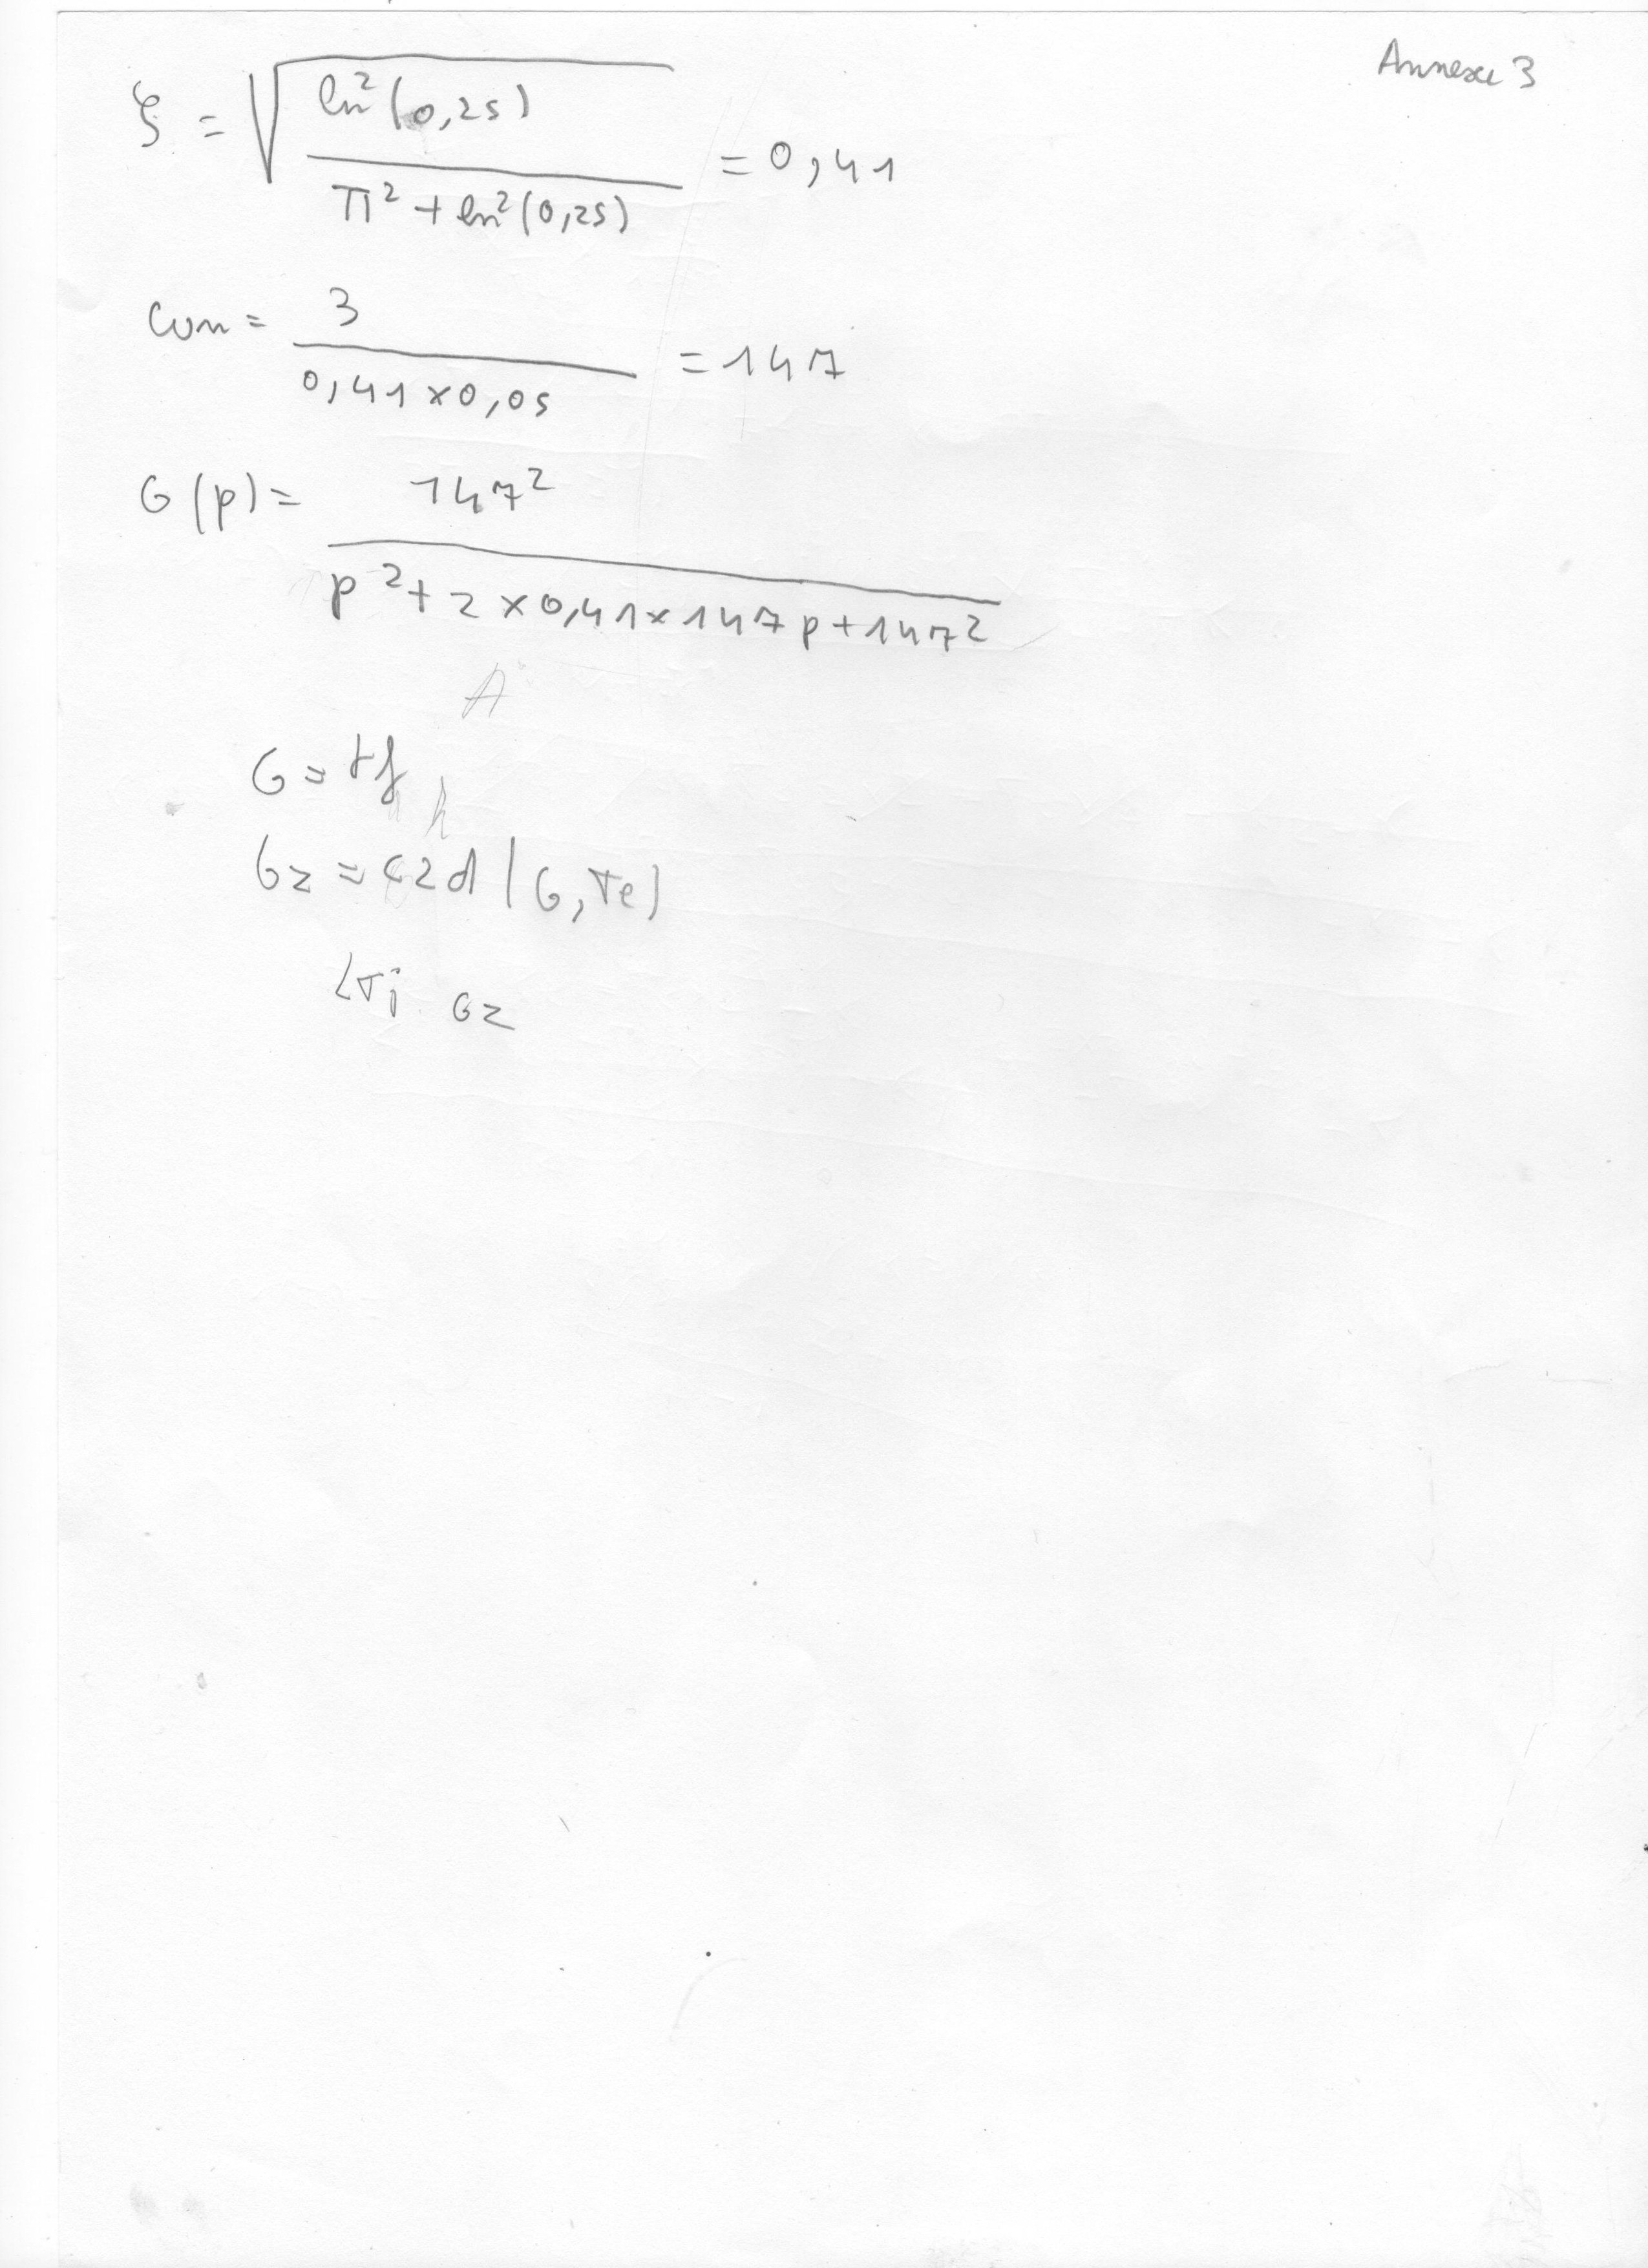 Annexe 3
ξ = √(ln²(0,25) / (π² + ln²(0,25))) = 0,41
ωn = 3 / (0,41 × 0,05) = 147
G(p) = 147² / (p² + 2 × 0,41 × 147p + 147²)
A
G = tf
Gz = c2d(G, Te)
LTi Gz